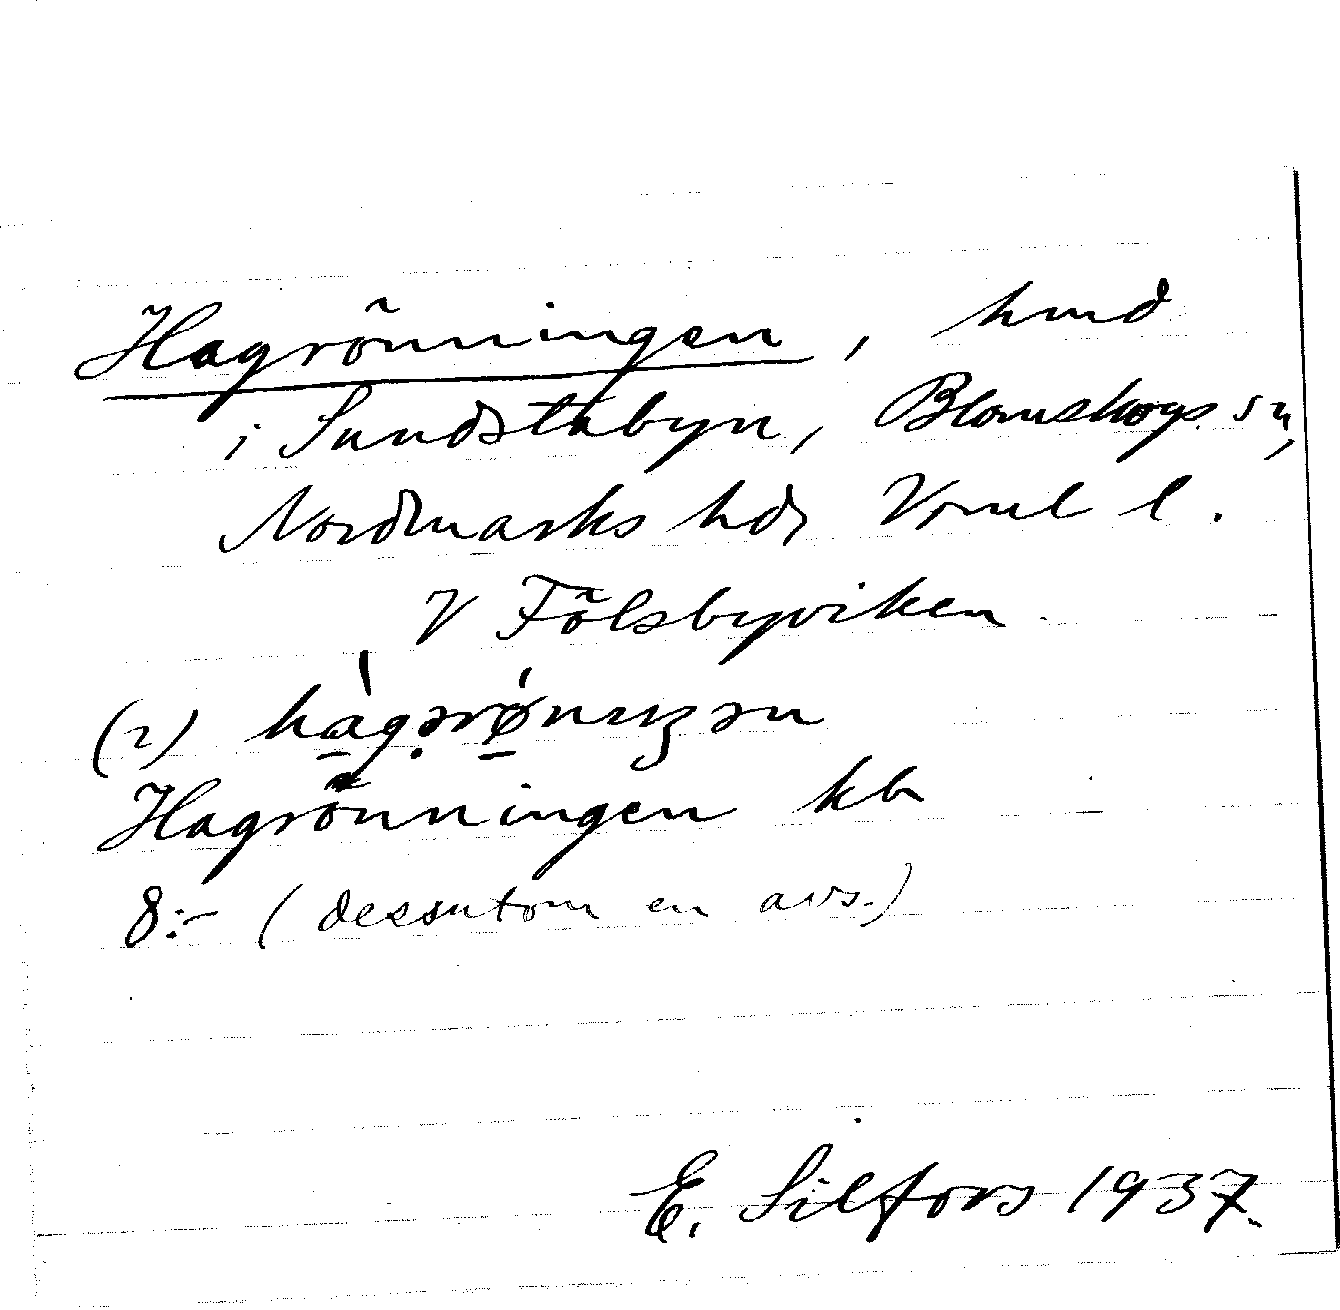 Hagrönningen, hmd
i Sundstabyn, Blomskogs sn,
Nordmarks hd, Vrml l.
V Fölsbyviken
(2) hàgərǿnıŋən
Hagrönningen kb
8:- (dessutom en avs.)
E. Silfors 1937.